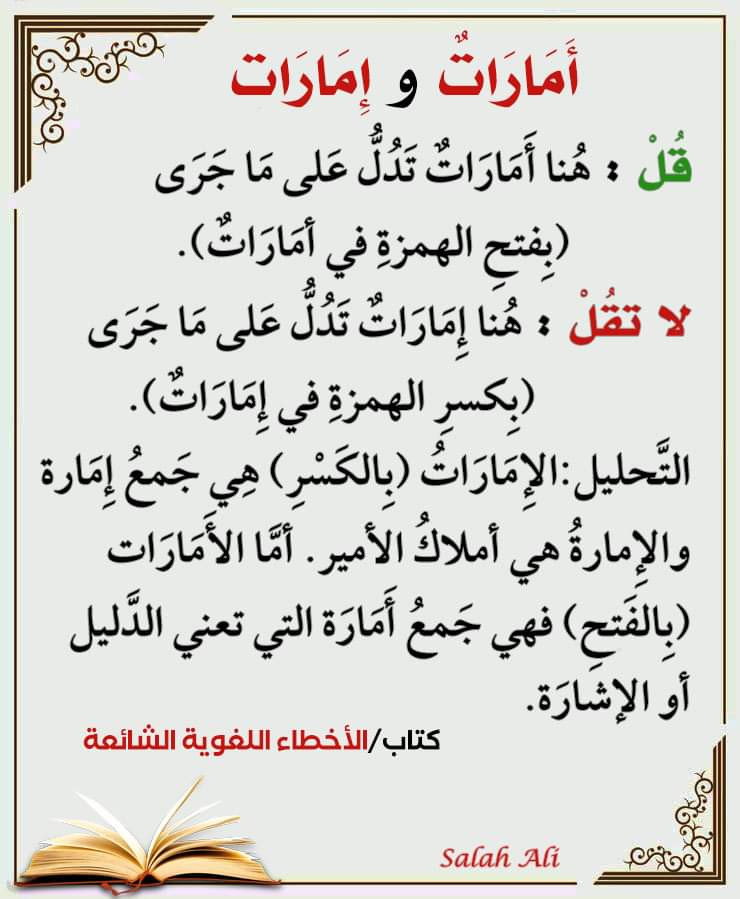 أَمَارَاتٌ و إِمَارَات
قُلْ : هُنا أَمَارَاتٌ تَدُلُّ عَلى مَا جَرَى
(بِفتحِ الهمزةِ في أمَارَاتٌ).
لا تقُلْ : هُنا إِمَارَاتٌ تَدُلُّ عَلى مَا جَرَى
(بِكسرِ الهمزةِ في إِمَارَاتٌ).
التَّحليل:الإِمَارَاتُ (بِالكَسْرِ) هِي جَمعُ إِمَارة
والإِمارةُ هي أملاكُ الأمير. أمَّا الأَمَارَات
(بِالفَتحِ) فهي جَمعُ أَمَارَة التي تعني الدَّليل
أو الإشارَة.
كتاب/الأخطاء اللغوية الشائعة
Salah Ali